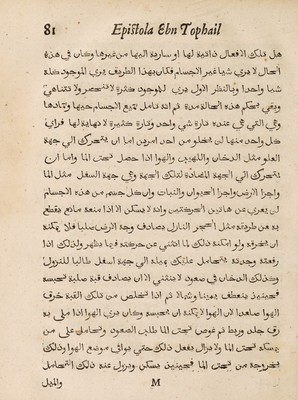 81 Epistola Ebn Tophail
هل بتلك الافعال ذاتية لها او سارية اليها من غيرها وكان في هذه
الحال لا يري شيا غير الاجسام فكان بهذا الطريف يري الموجود كله
شيا واحدا وبالنظر الاول يري الموجود كثرة لا تنحصر ولا تتناهي
وبقي بحكم هذه الحالة مدة ثم انه تامل جميع الاجسام حيها وجمادها
وهي التي هي عنده تارة شي واحد وتارة كثيرة لا نهاية لها فراي
كل واحد منها لن يخلو من احد امرين اما ان يتحرك الي جهة
العلو مثل الدخان واللهيب والهوا اذا حصل تحت الما واما ان
يتحرك الي الجهة المضادة لتلك الجهة وهي جهة السفل مثل الما
واجزا الارض واجزا الحيوان والنبات وان كل جسم من هذه الاجسام
لن يعري عن هاتين الحركتين وانه لا يسكن الا اذا منعه مانع يقطع
به عن طريقه مثل الحجر النازل يصادف وجه الارض صلبا فلا يمكنه
ان يخرقه ولو امكنه ذلك لما انثني عن حركته فيما يظهر ولذلك اذا
رفعته وجدته يتحامل عليك بميله الي جهة السفل طالبا للنزول
وكذلك الدخان في صعوده لا ينثني الا ان يصادف قبة صلبة تحبسه
فحينيذ ينعطف يمينا وشمالا ثم اذا تخلص من تلك القبة خرف
الهوا صاعدا لان الهوا لا يمكنه ان يحبسه وكان يري الهوا اذا ملي به
زف جلد وربط ثم غوص تحت الما طلب الصعود وتحامل علي من
يمسكه تحت الما ولا يزال يفعل ذلك حتي يوافي موضع الهوا وذلك
بخروجه من تحت الما فحينيذ يسكن ويزول عنه ذلك التحامل
M والميل